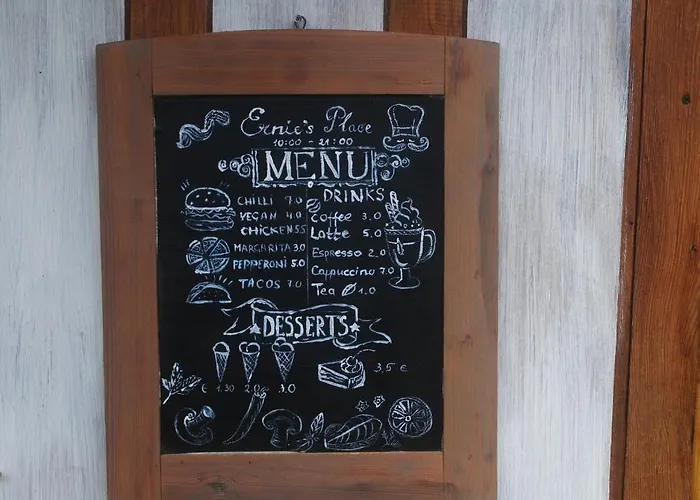 Ernie's Place
10:00 - 21:00
MENU
CHILLI 7.0
VEGAN 4.0
CHICKEN 5.5
MARGARITA 3.0
PEPPERONI 5.0
TACOS 7.0
DRINKS
Coffee 3.0
Latte 5.0
Espresso 2.0
Cappuccino 7.0
Tea 1.0
DESSERTS
€ 1.30 2.0 3.0
3,5 €